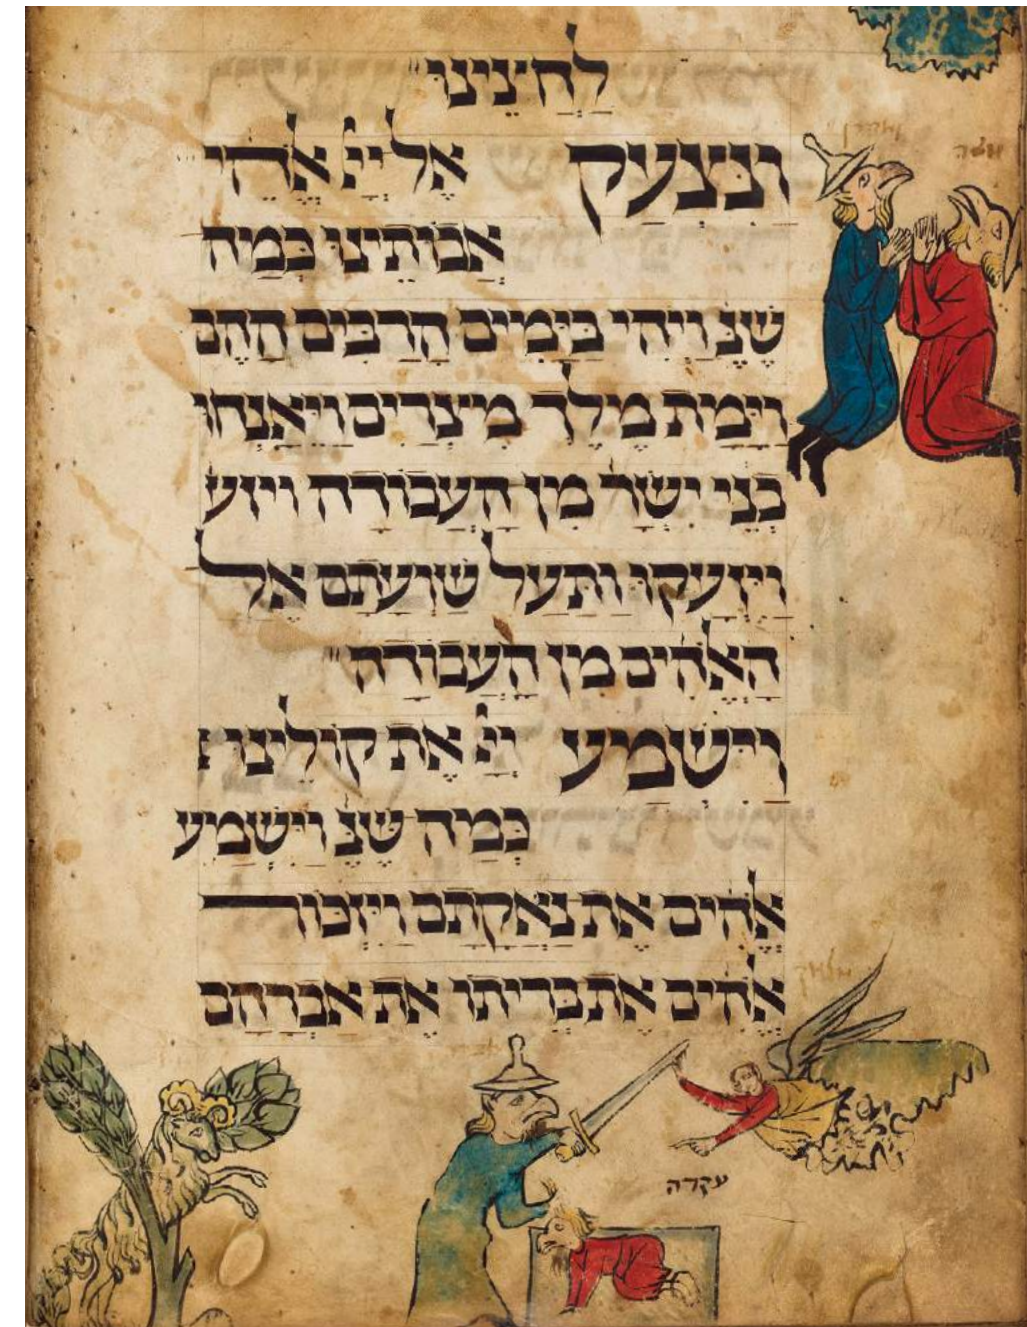 לחצינו"
אהרן
משה
ונצעק אל ייי אלהי
אבותינו כמה
שנ' ויהי בימים הרבים ההם
וימת מלך מיצרים ויאנחו
בני ישר' מן העבודה ויזע
ויזעקו ותעל שועתם אל
האלהים מן העבודה"
וישמע ייי את קולינו
כמה שנ' וישמע
אלהים את נאקתם ויזכור
מלאך
אלהים את בריתו את אברהם
עקדה